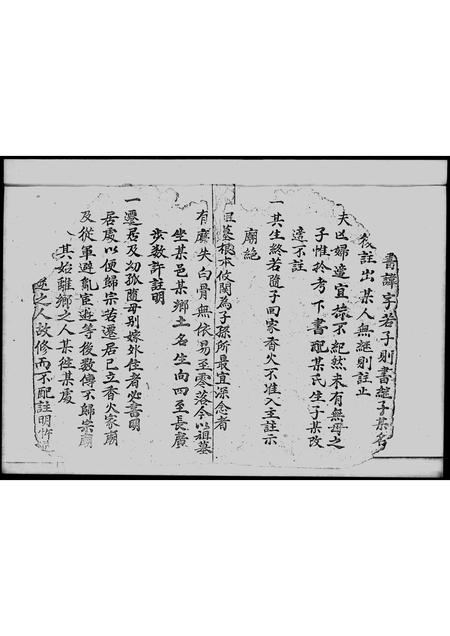 書諱字若子則書繼子某名
後註出某人無繼則註止
夫亡婦適宜 不紀然未有無母之
子惟於考下書配某氏生子某改
適不註
一其生終若隨子回家香火不准入主註示
廟絶
祖墓根本攸関為子孫所最宜深念者
有 失白骨無依易至零落今以祖墓
坐某邑某鄉土名坐向四至長廣
步数許註明
一遷居及幼孤隨母别嫁外住者必書明
居處以便歸宗若遷居已立香火家廟
及從軍避亂宦遊等後数傳不歸宗廟
其始離鄉之人某徃某處
之人故修而不配註明